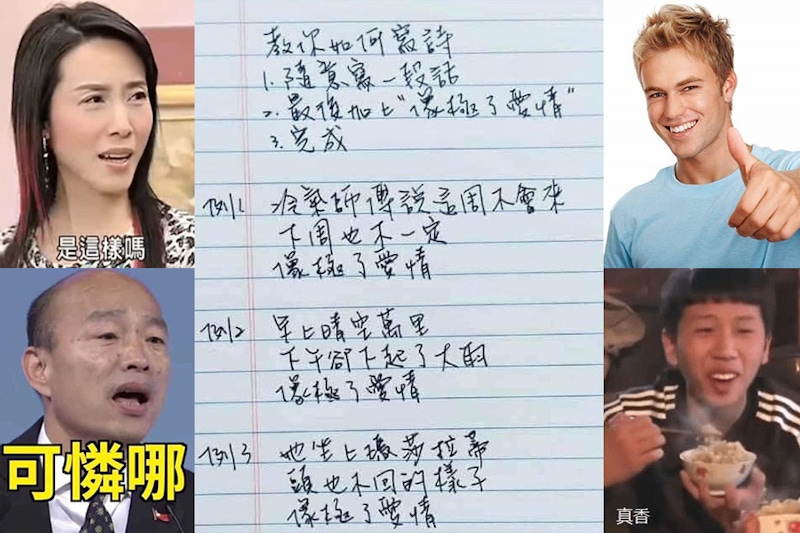 教你如何寫詩
1. 隨意寫一段話
2. 最後加上"像極了愛情"
3. 完成
例1 冷氣師傅說這周不會來
下周也不一定
像極了愛情
例2 早上晴空萬里
下午卻下起了大雨
像極了愛情
例3 她坐上瑪莎拉蒂
頭也不回的樣子
像極了愛情
是這樣嗎
可憐哪
真香